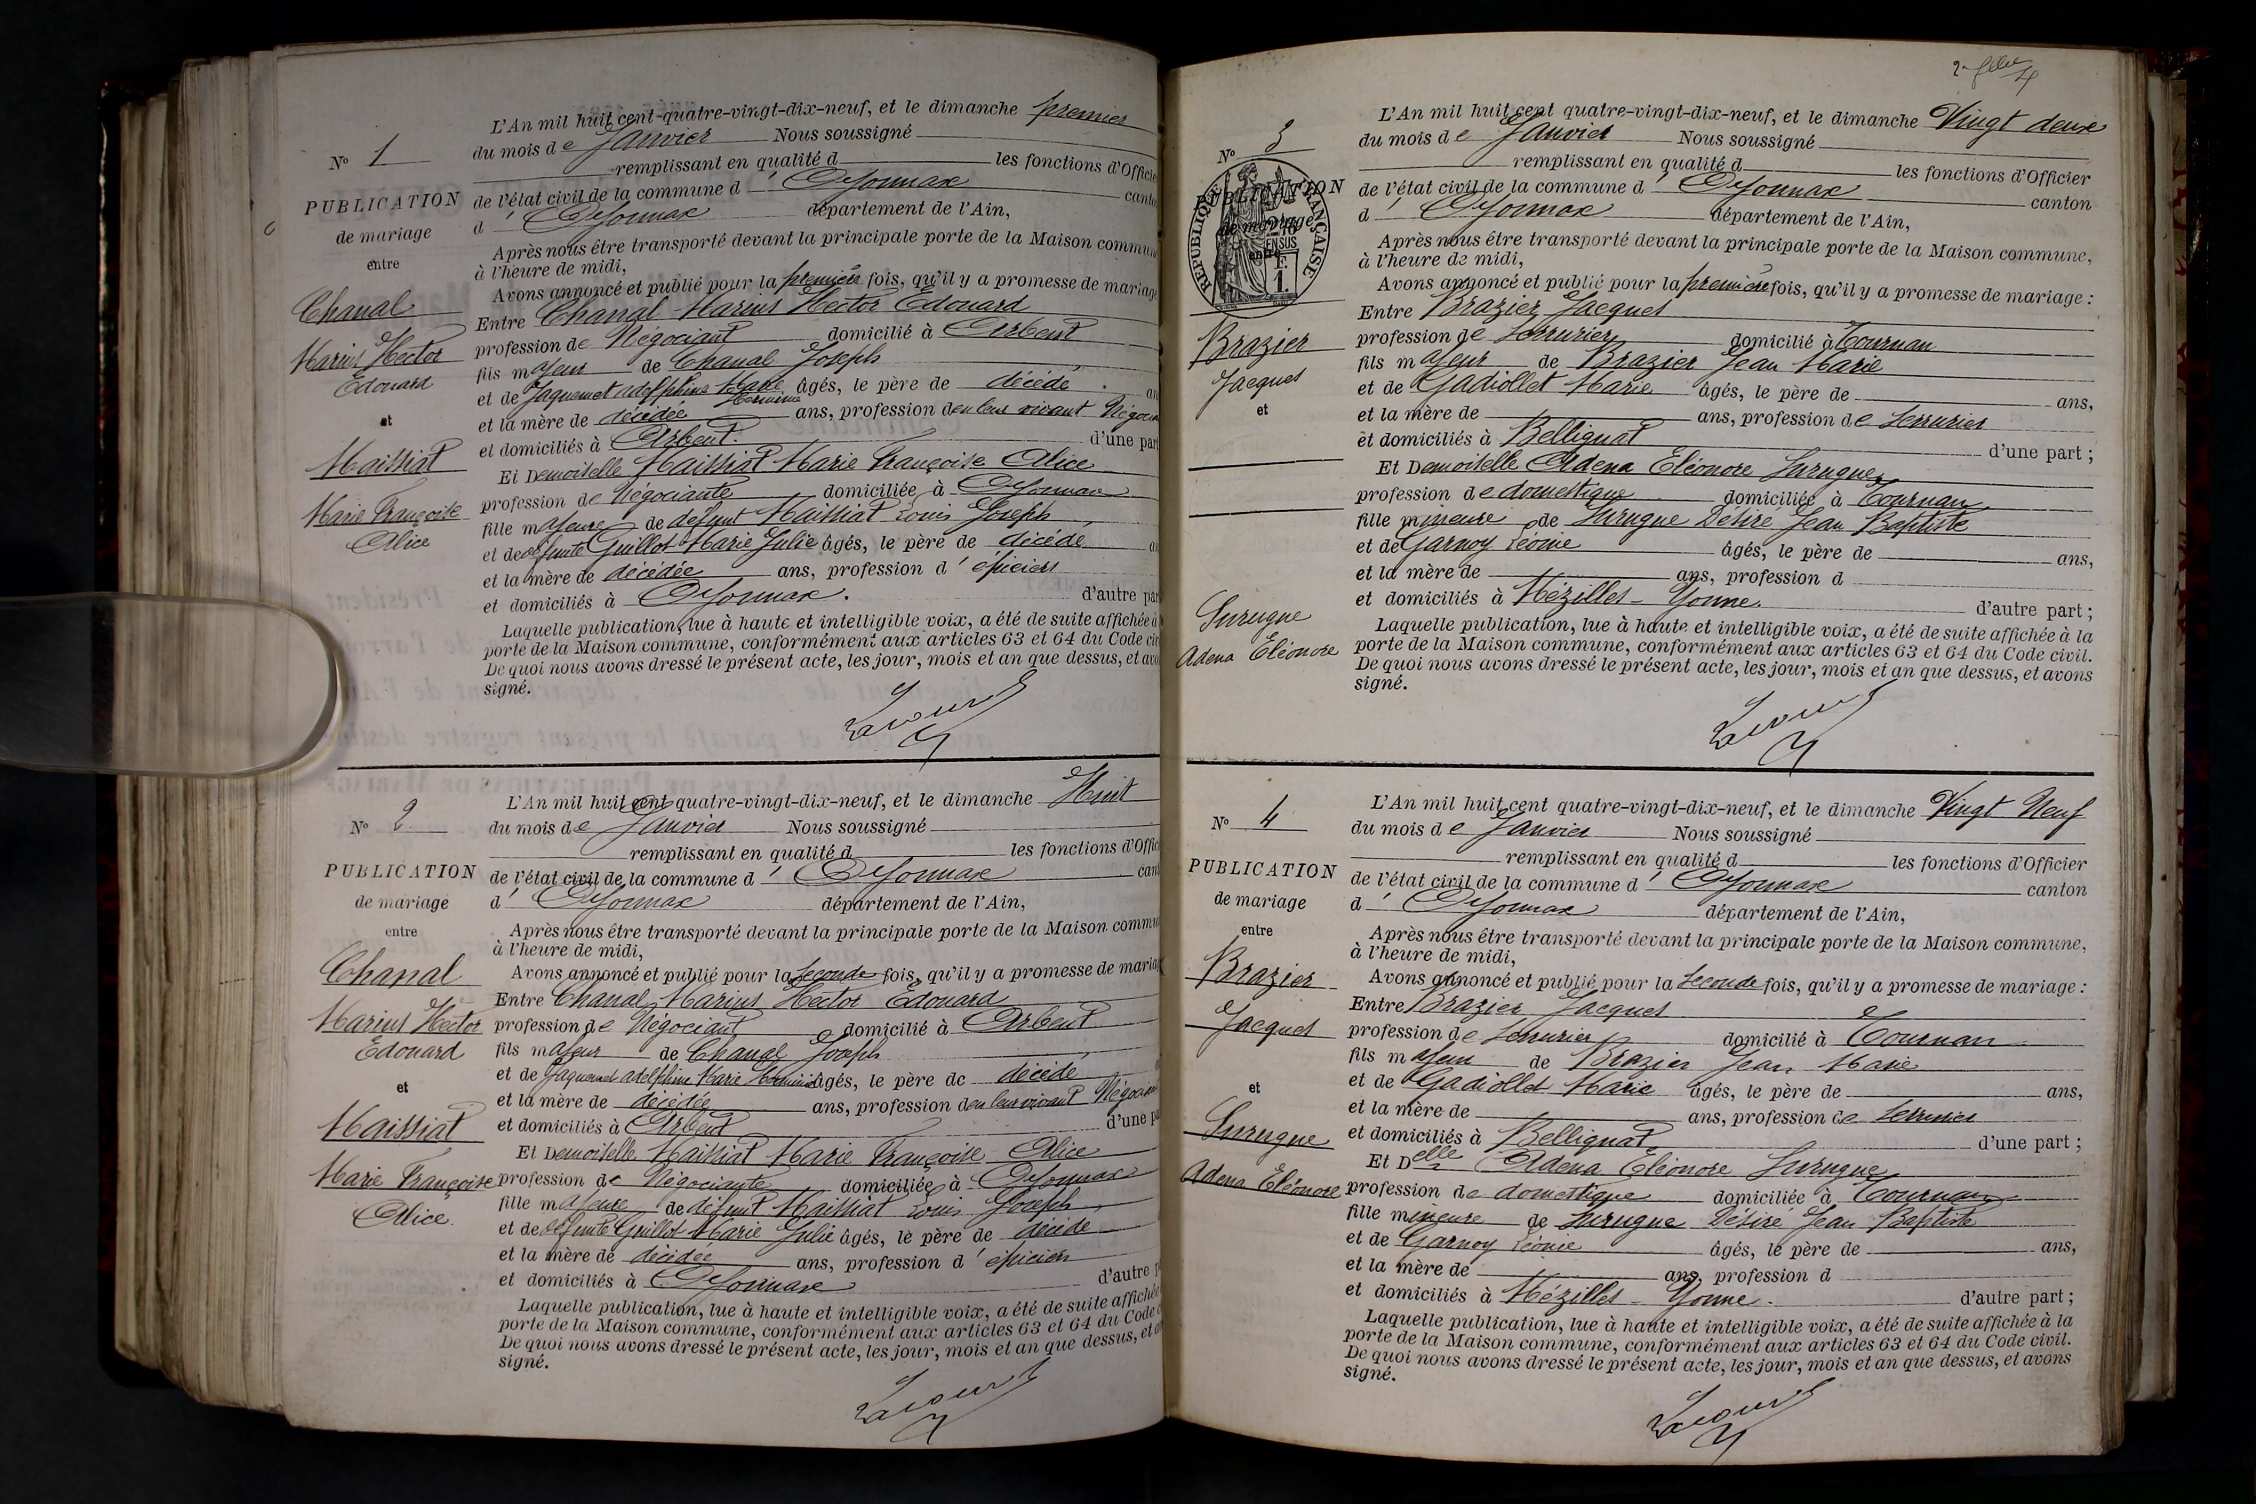 N° 1
PUBLICATION
de mariage
entre
Chanal
Marius Hector
Edouard
et
Maissiat
Marie Françoise
Alice
L'An mil huit cent quatre-vingt-dix-neuf, et le dimanche premier
du mois de Janvier Nous soussigné
remplissant en qualité d les fonctions d'Officie
de l'état civil de la commune d' Oyonnax canto
d' Oyonnax département de l'Ain,
Après nous être transporté devant la principale porte de la Maison commun
à l'heure de midi,
Avons annoncé et publié pour la première fois, qu'il y a promesse de mariage
Entre Chanal Marius Hector Edouard
profession de Négociant domicilié à Arbent
fils majeur de Chanal Joseph
et de Jaquemet adolphine Marie Herminie âgés, le père de décédé an
et la mère de décédée ans, profession d en leur vivant Négocia
et domiciliés à Arbent. d'une part
Et Demoiselle Maissiat Marie Françoise Alice
profession de Négociante domiciliée à Oyonnax
fille majeure de défunt Maissiat Louis Joseph
et de défunte Guillot Marie Julie âgés, le père de décédé an
et la mère de décédée ans, profession d' épiciers
et domiciliés à Oyonnax. d'autre par
Laquelle publication, lue à haute et intelligible voix, a été de suite affichée à
porte de la Maison commune, conformément aux articles 63 et 64 du Code civ
De quoi nous avons dressé le présent acte, les jour, mois et an que dessus, et avo
signé.
N° 2
PUBLICATION
de mariage
entre
Chanal
Marius Hector
Edouard
et
Maissiat
Marie Françoise
Alice.
L'An mil huit cent quatre-vingt-dix-neuf, et le dimanche Huit
du mois de Janvier Nous soussigné
remplissant en qualité d les fonctions d'Offic
de l'état civil de la commune d' Oyonnax cant
d' Oyonnax département de l'Ain,
Après nous être transporté devant la principale porte de la Maison commu
à l'heure de midi,
Avons annoncé et publié pour la seconde fois, qu'il y a promesse de mariag
Entre Chanal Marius Hector Edouard
profession de Négociant domicilié à Arbent
fils majeur de Chanal Joseph
et de Jaquemet adolphine Marie Herminie âgés, le père de décédé
et la mère de décédée ans, profession d en leur vivant Négocian
et domiciliés à Arbent d'une pa
Et Demoiselle Maissiat Marie Françoise Alice
profession de Négociante domiciliée à Oyonnax
fille majeure de défunt Maissiat Louis Joseph
et de défunte Guillot Marie Julie âgés, le père de décédé
et la mère de décédée ans, profession d' épiciers
et domiciliés à Oyonnax d'autre p
Laquelle publication, lue à haute et intelligible voix, a été de suite affichée
porte de la Maison commune, conformément aux articles 63 et 64 du Code c
De quoi nous avons dressé le présent acte, les jour, mois et an que dessus, et a
signé.
N° 3
PUBLICATION
de mariage
entre
RÉPUBLIQUE FRANÇAISE
Brazier
Jacques
et
Surugue
Adena Eléonore
L'An mil huit cent quatre-vingt-dix-neuf, et le dimanche Vingt deux
du mois de Janvier Nous soussigné
remplissant en qualité d les fonctions d'Officier
de l'état civil de la commune d' Oyonnax canton
d' Oyonnax département de l'Ain,
Après nous être transporté devant la principale porte de la Maison commune,
à l'heure de midi,
Avons annoncé et publié pour la première fois, qu'il y a promesse de mariage :
Entre Brazier Jacques
profession de Serrurier domicilié à Tournan
fils majeur de Brazier Jean Marie
et de Gadiollet Marie âgés, le père de ans,
et la mère de ans, profession de Serrurier
et domiciliés à Bellignat d'une part ;
Et Demoiselle Adena Eléonore Surugue
profession de domestique domiciliée à Tournan
fille mineure de Surugue Désiré Jean Baptiste
et de Garnoy Léonie âgés, le père de ans,
et la mère de ans, profession d
et domiciliés à Mézilles - Yonne. d'autre part ;
Laquelle publication, lue à haute et intelligible voix, a été de suite affichée à la
porte de la Maison commune, conformément aux articles 63 et 64 du Code civil.
De quoi nous avons dressé le présent acte, les jour, mois et an que dessus, et avons
signé.
N° 4
PUBLICATION
de mariage
entre
Brazier
Jacques
et
Surugue
Adena Eléonore
L'An mil huit cent quatre-vingt-dix-neuf, et le dimanche Vingt Neuf
du mois de Janvier Nous soussigné
remplissant en qualité d les fonctions d'Officier
de l'état civil de la commune d' Oyonnax canton
d' Oyonnax département de l'Ain,
Après nous être transporté devant la principale porte de la Maison commune,
à l'heure de midi,
Avons annoncé et publié pour la seconde fois, qu'il y a promesse de mariage :
Entre Brazier Jacques
profession de Serrurier domicilié à Tournan
fils majeur de Brazier Jean Marie
et de Gadiollet Marie âgés, le père de ans,
et la mère de ans, profession de Serrurier
et domiciliés à Bellignat d'une part ;
Et Delle Adena Eléonore Surugue
profession de domestique domiciliée à Tournan
fille mineure de Surugue Désiré Jean Baptiste
et de Garnoy Léonie âgés, le père de ans,
et la mère de ans, profession d
et domiciliés à Mézilles - Yonne. d'autre part ;
Laquelle publication, lue à haute et intelligible voix, a été de suite affichée à la
porte de la Maison commune, conformément aux articles 63 et 64 du Code civil.
De quoi nous avons dressé le présent acte, les jour, mois et an que dessus, et avons
signé.